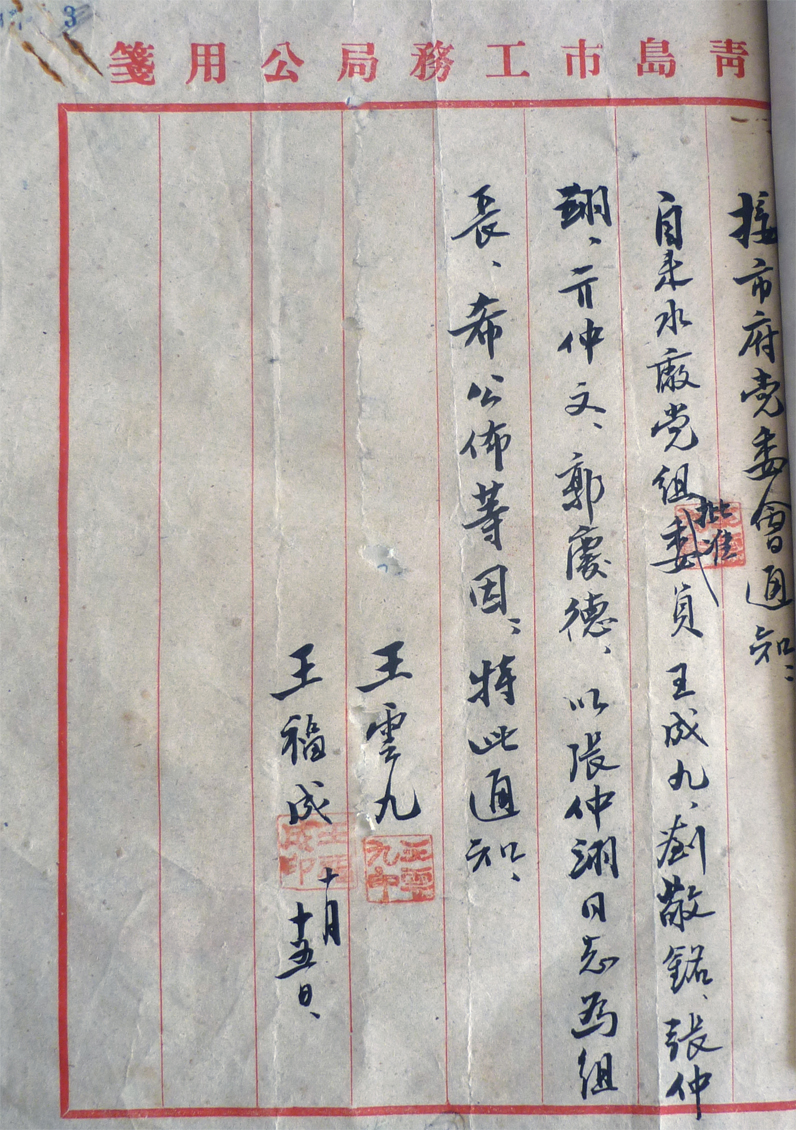 青島市工務局公用箋
接市府党委會通知：
批准
自来水廠党組委員王成九、劉敬銘、張仲
翔、亓仲文、郭慶德、以張仲翔同志為組
長、希公佈等因、特此通知、
王雲九
王雲九印
王福成
王福成印
十月十五日、
3